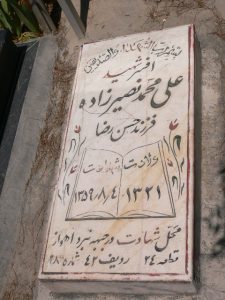 افسر شهید
علی محمد نصیرزاده
فرزند حسن رضا
ولادت شهادت
۱۳۲۱ ۱۳۵۹/۸/۴
محل شهادت در جبهه نبرد اهواز
قطعه ۲۴ ردیف ۴۲ شماره ۹۸